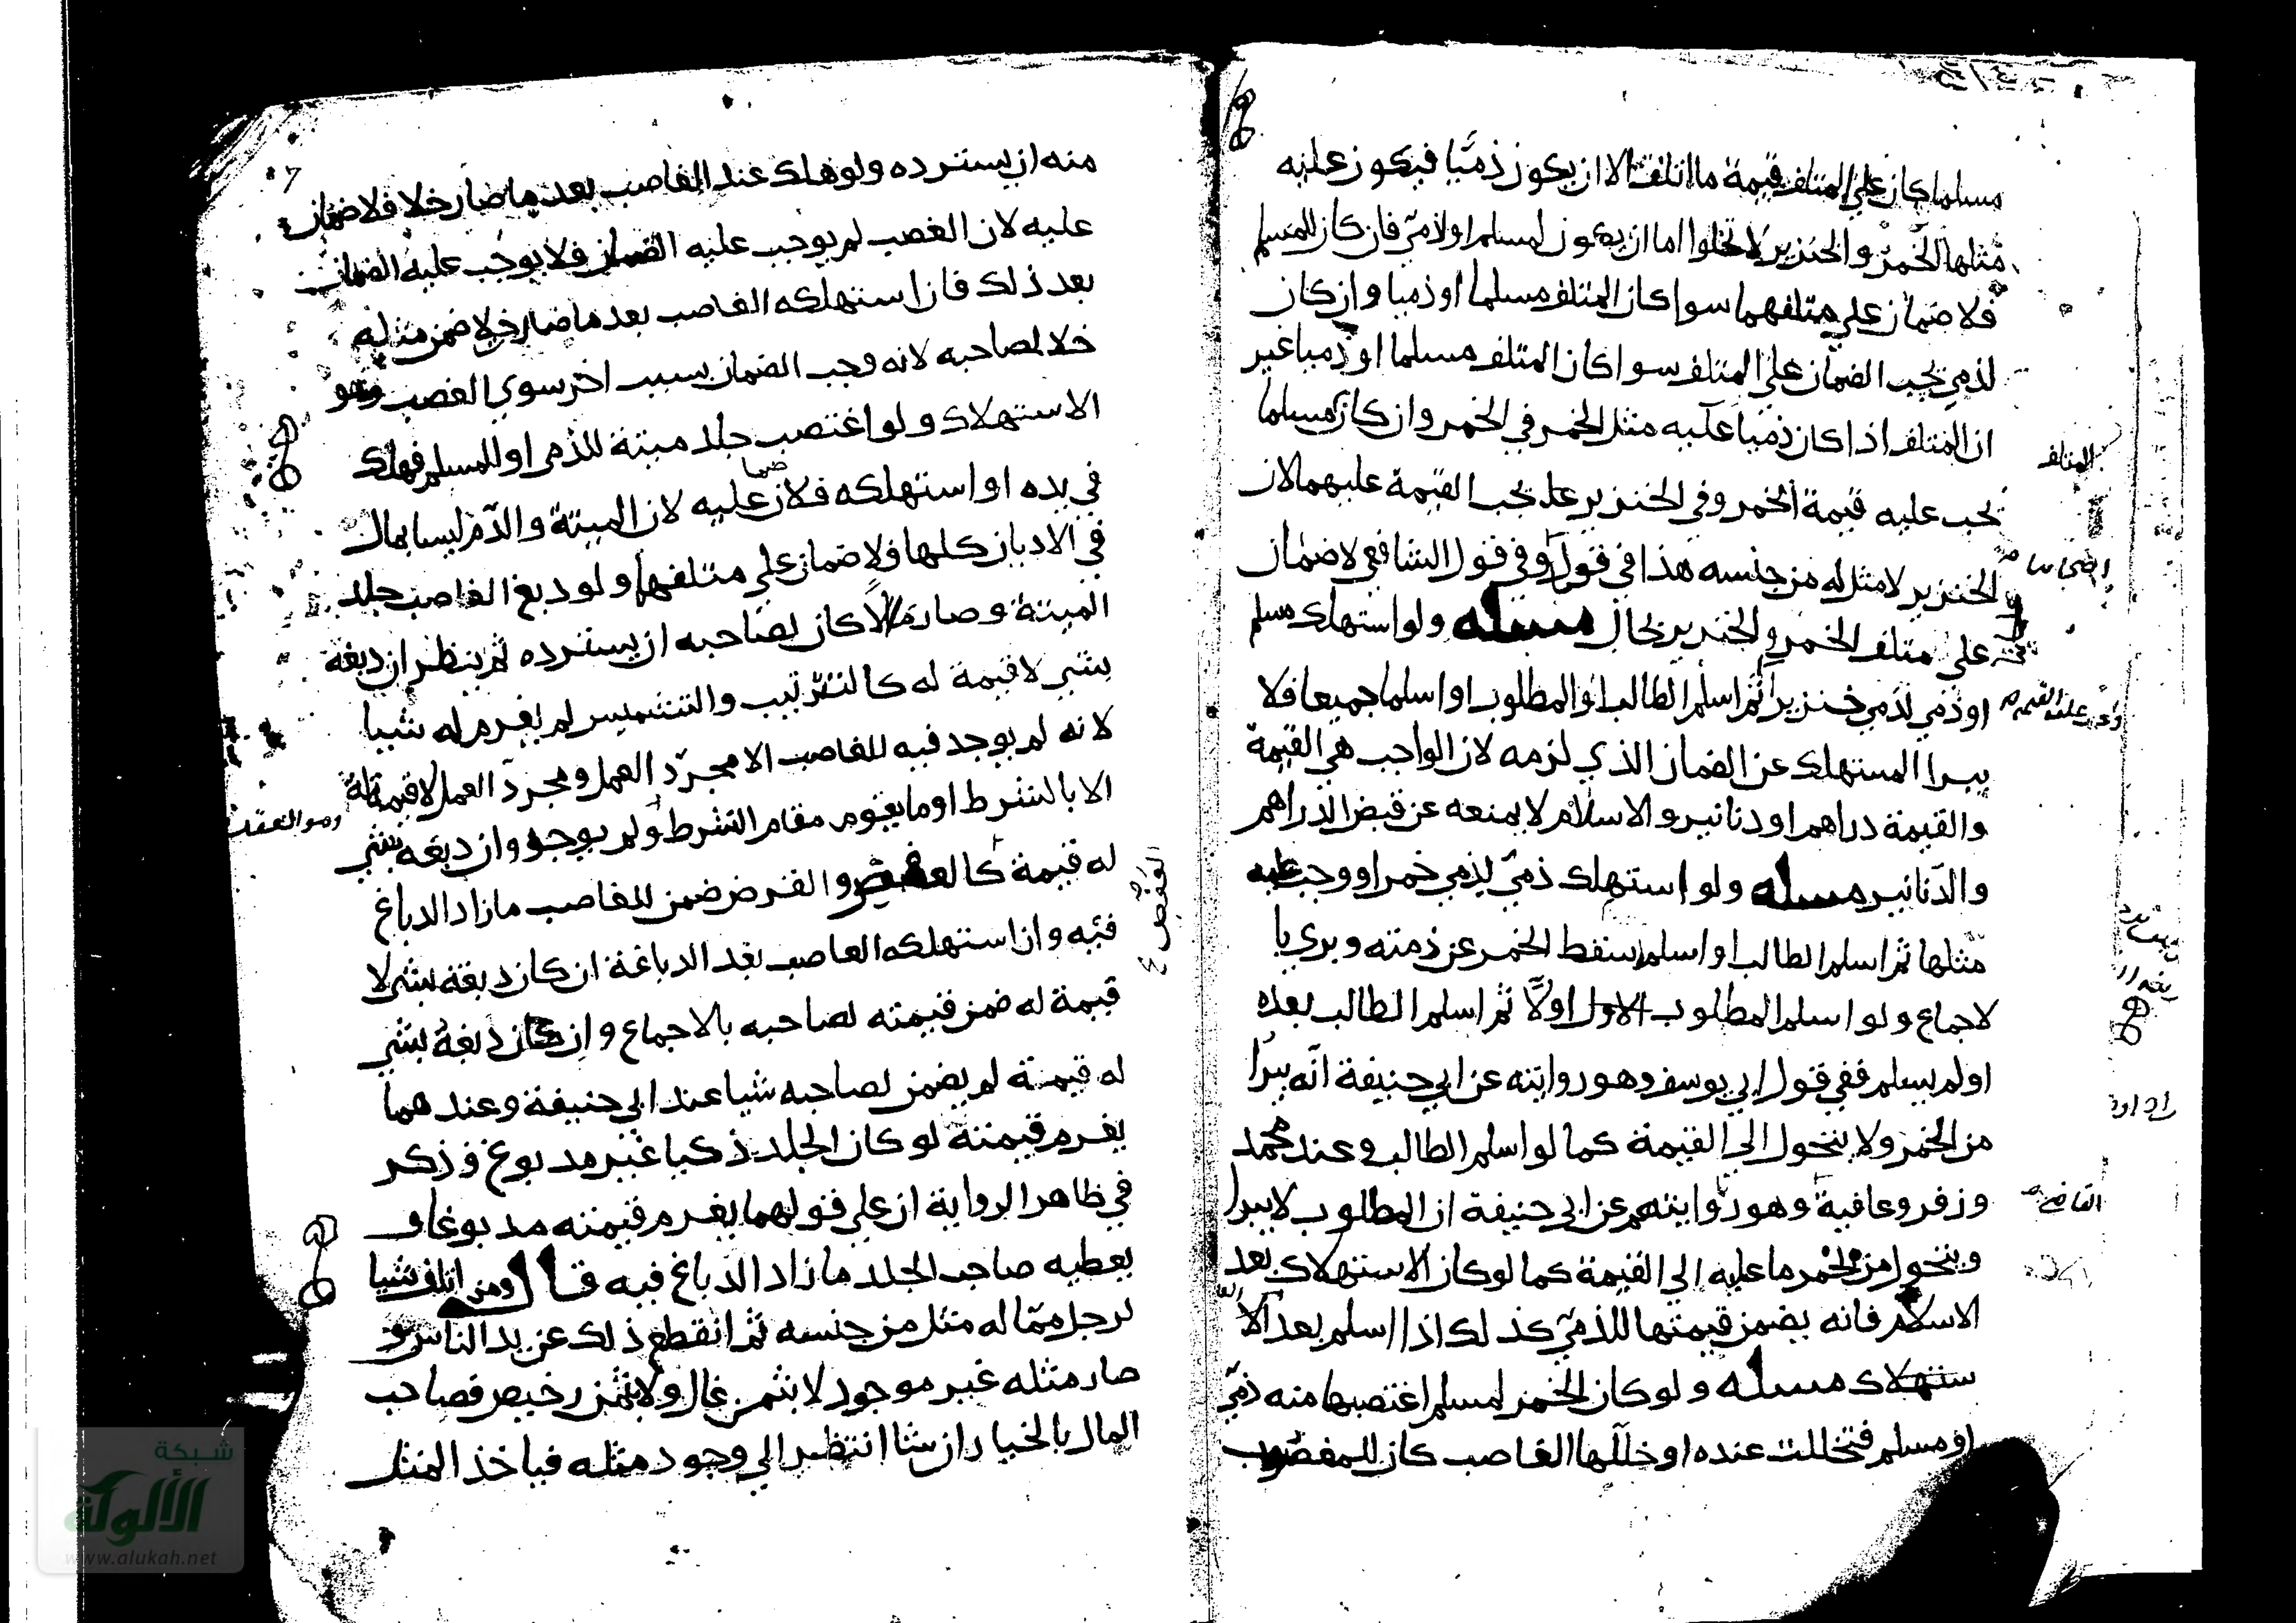 مسلما كان علي المتلف قيمة ما اتلف الا ان يكون ذميا فيكون عليه
مثلها الخمر والخنزير لا تخلوا اما ان يكون لمسلم او لذمي فان كان للمسلم
فلا ضمان علي متلفهما سوا كان المتلف مسلما او ذميا وان كان
لذمي يجب الضمان علي المتلف سوا كان المتلف مسلما او ذميا غير
ان المتلف اذا كان ذميا عليه مثل الخمر في الخمر وان كان مسلما
يجب عليه قيمة الخمر وفي الخنزير يجب القيمة عليهما لان
الخنزير لا مثل له من جنسه هذا في قول وفي قول الشافعي لا ضمان
علي متلف الخمر والخنزير بحال مسله ولو استهلك مسلم
او ذمي لذمي خنزيرا ثم اسلم الطالب او المطلوب او اسلما جميعا فلا
يبرا المستهلك عن الضمان الذي لزمه لان الواجب هي القيمة
والقيمة دراهم او دنانير والاسلام لا يمنعه عن قبض الدراهم
والدنانير مسله ولو استهلك ذمي لذمي خمرا ووجب عليه
مثلها ثم اسلم الطالب او اسلما سقط الخمر عن ذمته وبري با
لاجماع ولو اسلم المطلوب الاول اولا ثم اسلم الطالب بعده
او لم يسلم ففي قول ابي يوسف وهو روايته عن ابي حنيفة انه يبرا
من الخمر ولا يتحول الي القيمة كما لو اسلم الطالب وعند محمد
وزفر وعافية وهو روايتهم عن ابي حنيفة ان المطلوب لا يبرا
ويتحول من الخمر ما عليه الي القيمة كما لو كان الاستهلاك بعد
الاسلام فانه يضمن قيمتها للذمي كذلك اذا اسلم بعد الا
ستهلاك مسله ولو كان الخمر لمسلم اغتصبها منه ذمي
او مسلم فتخللت عنده او خللها الغاصب كان للمغصوب
المتلف
القاضي
منه ان يسترده ولو هلك عند الغاصب بعد ما صار خلا فلا ضمان
عليه لان الغصب لم يوجب عليه الضمان فلا يوجب عليه الضمان
بعد ذلك فان استهلكه الغاصب بعد ما صار خلا ضمن مثله
خلا لصاحبه لانه وجب الضمان بسبب اخر سوي الغصب وهو
الاستهلاك ولو اغتصب جلد ميتة للذمي او للمسلم فهلك
في يده او استهلكه فلا ضمان عليه لان الميتة والدم ليسا بمال
في الاديان كلها ولا ضمان علي متلفها ولو دبغ الغاصب جلد
الميتة وصار مالا كان لصاحبه ان يسترده ثم ينظر ان دبغه
بشي لا قيمة له كالتتريب والتشميس لم يغرم له شيا
لانه لم يوجد فيه للغاصب الا مجرد العمل ومجرد العمل لا قيمة له
الا بالشرط او ما يقوم مقام الشرط ولم يوجد وان دبغه بشي
وهو العقد
له قيمة كالعفص والقرض ضمن للغاصب ما زاد الدباغ
العفص
فيه وان استهلكه الغاصب بعد الدباغة ان كان دبغه بشي لا
قيمة له ضمن قيمته لصاحبه بالاجماع وان كان دبغه بشي
له قيمة لم يضمن لصاحبه شيا عند ابي حنيفة وعندهما
يغرم قيمته لو كان الجلد ذكيا غير مدبوغ وذكر
في ظاهر الرواية ان علي قولهما يغرم قيمته مدبوغا و
يعطيه صاحب الجلد ما زاد الدباغ فيه قال ومن اتلف شيا
لرجل مما له مثل من جنسه ثم انقطع ذلك عن يد الناس و
صار مثله غير موجود لا بثمن غال ولا بثمن رخيص فصاحب
المال بالخيار ان شا انتظر الي وجود مثله فياخذ المثل
شبكة
الألوكة
www.alukah.net